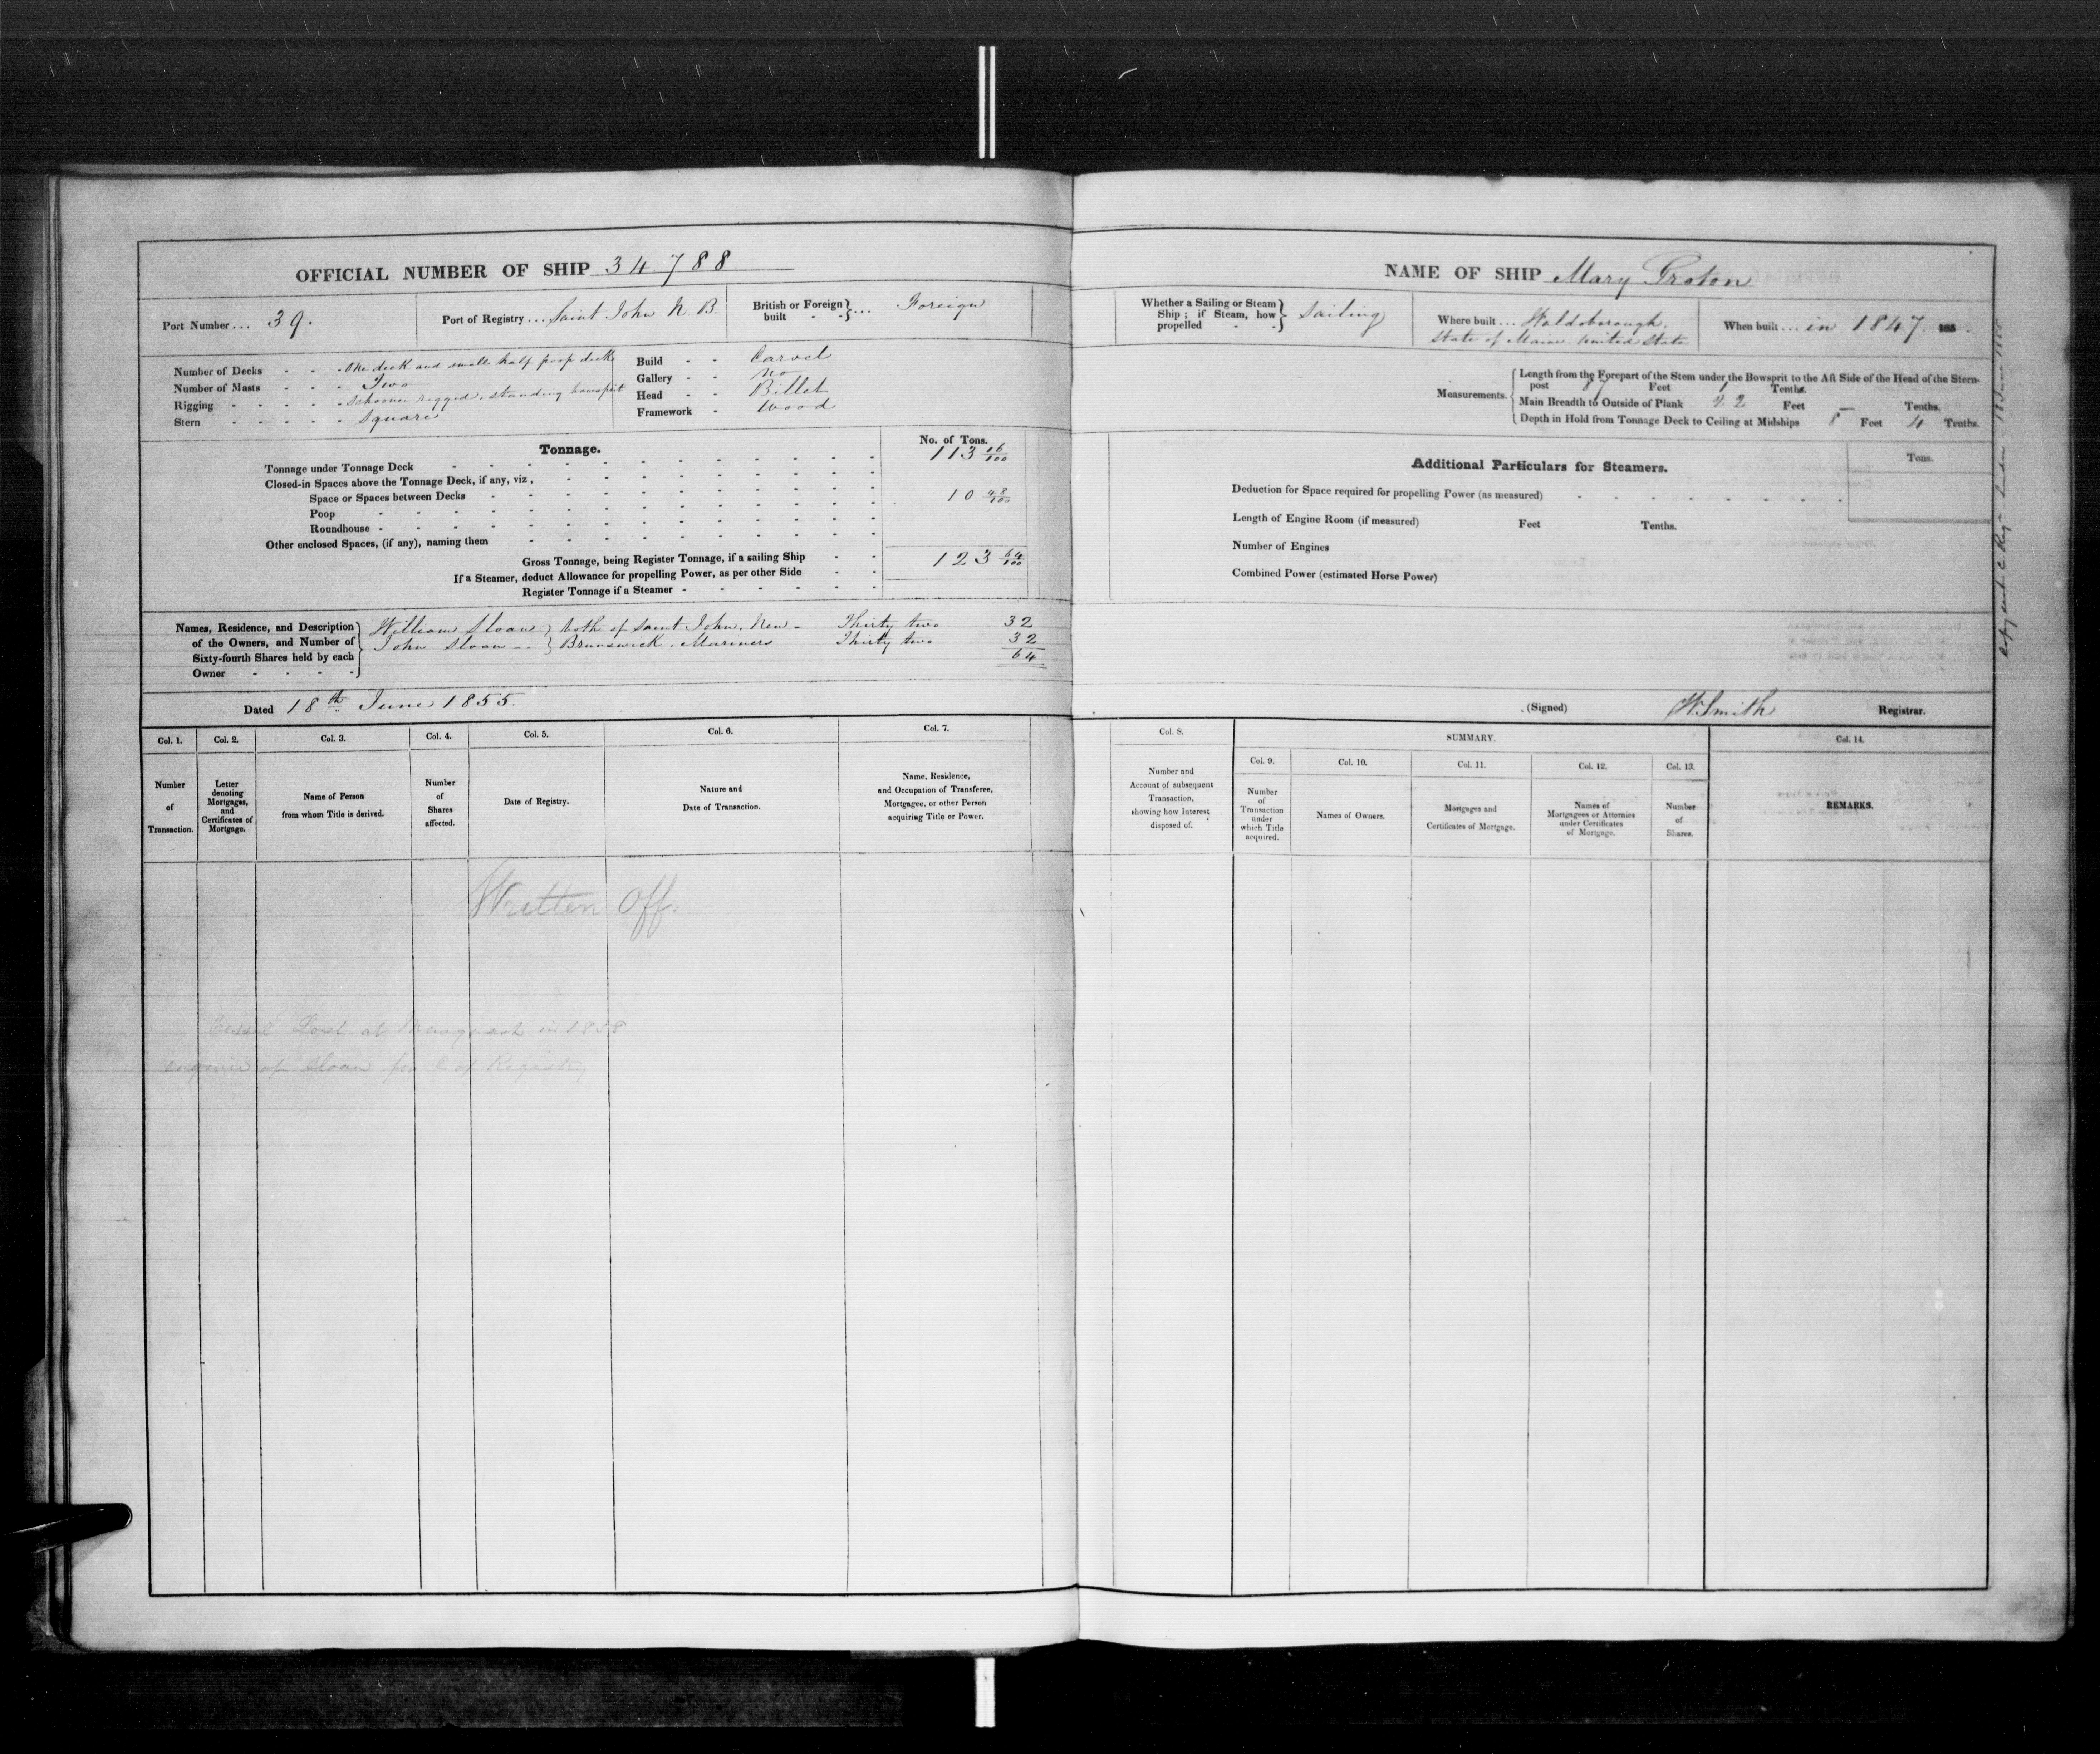 OFFICIAL NUMBER OF SHIP 34.788
Port Number ... 39.
Port of Registry ... Saint John N. B.
British or Foreign built } ... Foreign
Number of Decks - - - One deck and small half poop deck
Number of Masts - - - Two
Rigging - - - - - Schooner rigged, standing bowsprit
Stern - - - - - Square
Build - - Carvel
Gallery - - No
Head - - Billet
Framework - Wood
Tonnage.
No. of Tons.
Tonnage under Tonnage Deck 113 16/100
Closed-in Spaces above the Tonnage Deck, if any, viz,
Space or Spaces between Decks 10 48/100
Poop
Roundhouse
Other enclosed Spaces, (if any), naming them
Gross Tonnage, being Register Tonnage, if a sailing Ship 123 64/100
If a Steamer, deduct Allowance for propelling Power, as per other Side
Register Tonnage if a Steamer
Names, Residence, and Description
of the Owners, and Number of
Sixty-fourth Shares held by each
Owner
William Sloan } both of Saint John, New - Thirty two 32
John Sloan -- } Brunswick, Mariners Thirty two 32
64
Dated 18th June 1855.
Col. 1. Col. 2. Col. 3. Col. 4. Col. 5. Col. 6. Col. 7.
Number of Transaction.
Letter denoting Mortgages, and Certificates of Mortgage.
Name of Person from whom Title is derived.
Number of Shares affected.
Date of Registry.
Nature and Date of Transaction.
Name, Residence, and Occupation of Transferee, Mortgagee, or other Person acquiring Title or Power.
Written Off.
Vessel Lost at in 1858
enquire of Sloan for C of Registry
NAME OF SHIP Mary Groton
Whether a Sailing or Steam Ship; if Steam, how propelled } Sailing
Where built ... Waldoborough,
State of Maine United States
When built ... in 1847. 185
Measurements.
Length from the Forepart of the Stem under the Bowsprit to the Aft Side of the Head of the Stern-
post Feet 1 Tenths.
Main Breadth to Outside of Plank 22 Feet – Tenths.
Depth in Hold from Tonnage Deck to Ceiling at Midships 8 Feet 4 Tenths.
Additional Particulars for Steamers.
Tons.
Deduction for Space required for propelling Power (as measured)
Length of Engine Room (if measured) Feet Tenths.
Number of Engines
Combined Power (estimated Horse Power)
(Signed) W. Smith Registrar.
Col. 8. SUMMARY. Col. 14.
Col. 9. Col. 10. Col. 11. Col. 12. Col. 13.
Number and Account of subsequent Transaction, showing how Interest disposed of.
Number of Transaction under which Title acquired.
Names of Owners.
Mortgages and Certificates of Mortgage.
Names of Mortgagees or Attornies under Certificates of Mortgage.
Number of Shares.
REMARKS.